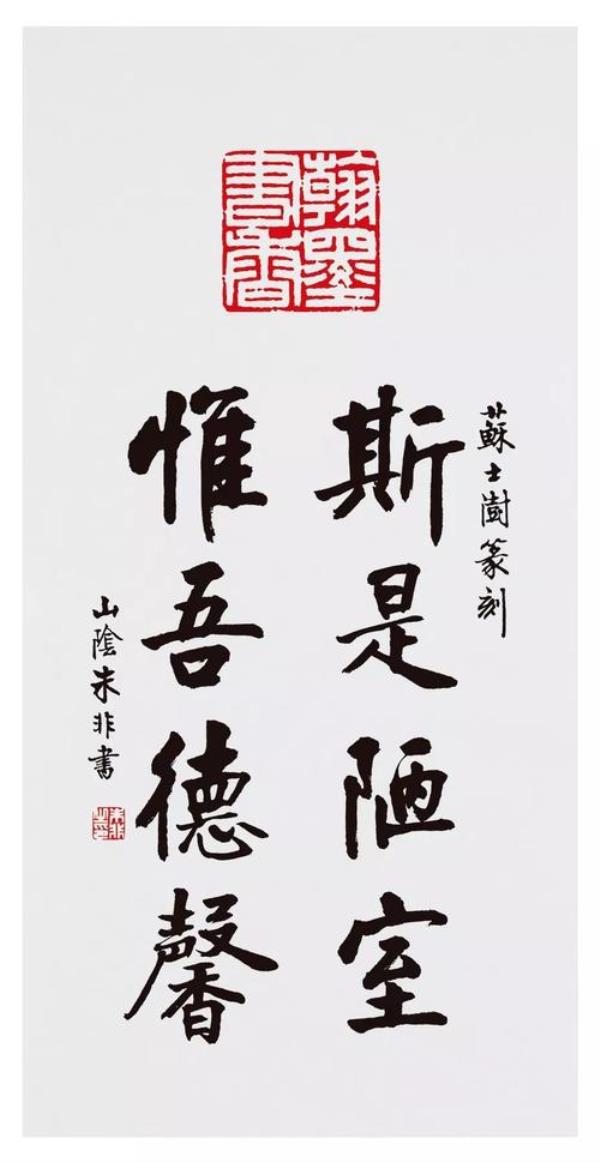 翰墨
書香
蘇士澍篆刻
斯是陋室
惟吾德馨
山陰朱非書